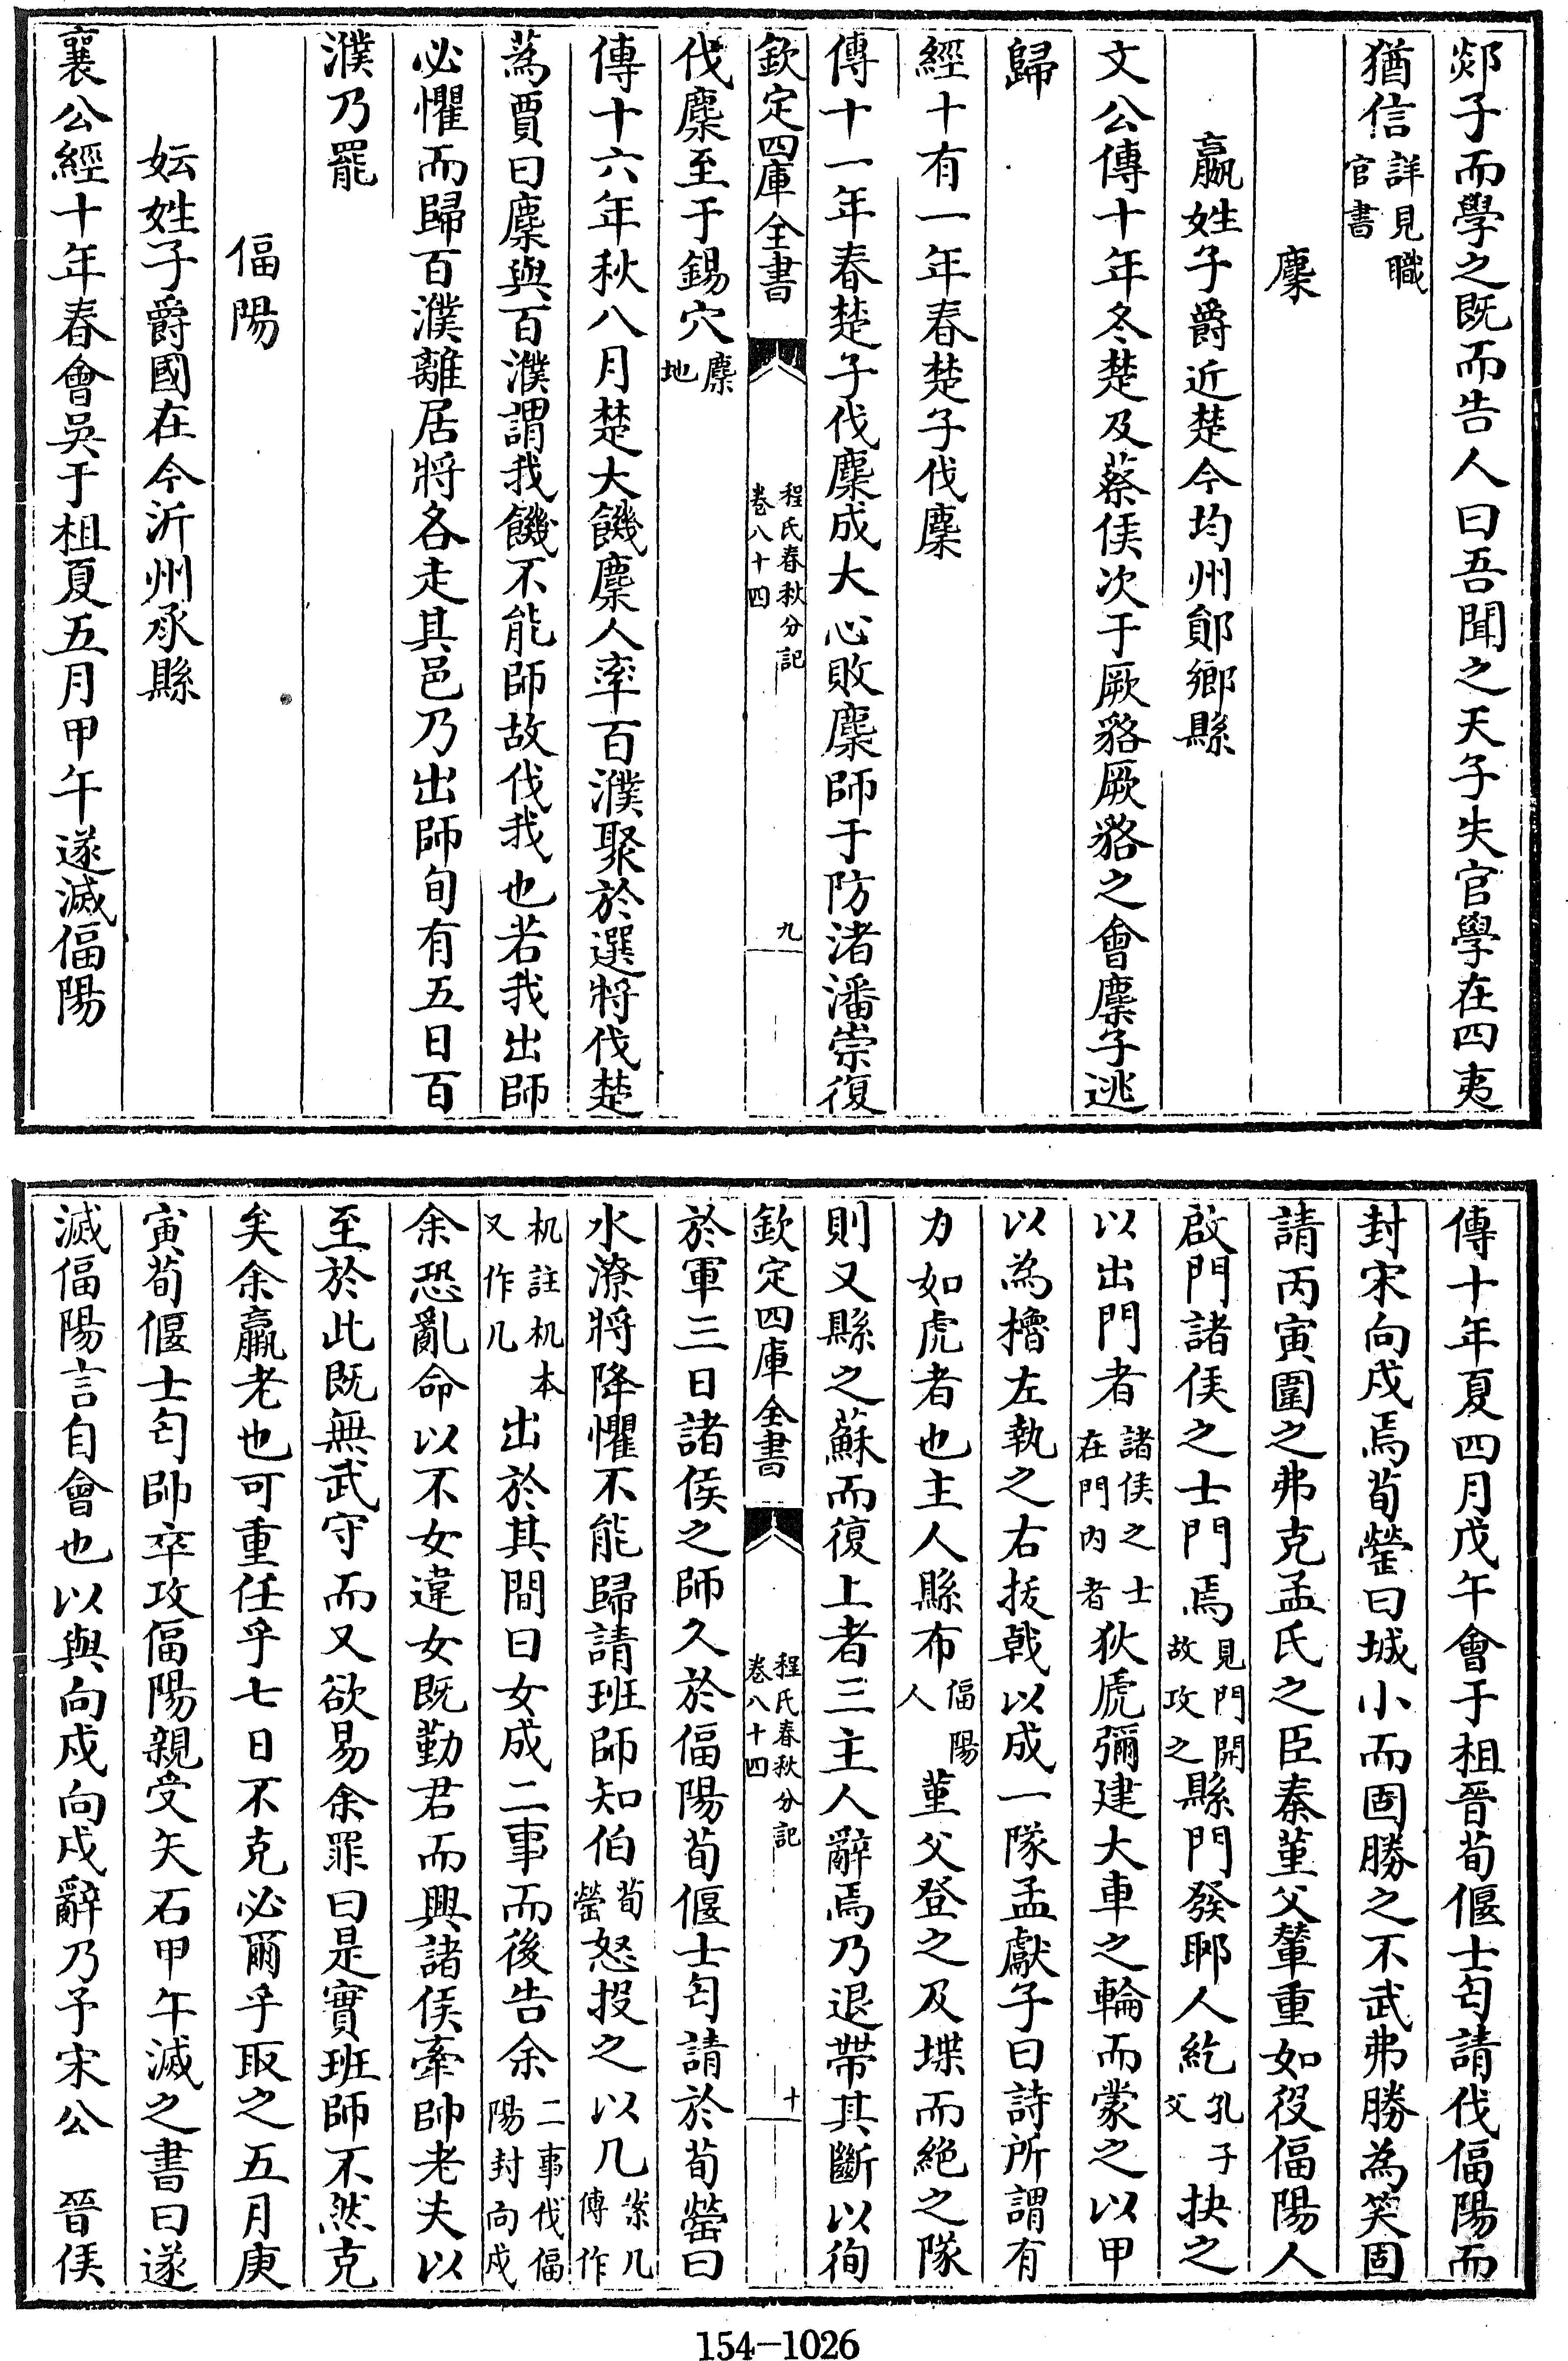 郯子而學之既而告人曰吾聞之天子失官學在四夷
猶信詳見職官書
麇
嬴姓子爵近楚今均州鄖鄉縣
文公傳十年冬楚及蔡侯次于厥貉厥貉之會麇子逃
歸
經十有一年春楚子伐麇
傳十一年春楚子伐麇成大心敗麇師于防渚潘崇復
欽定四庫全書
程氏春秋分記
卷八十四
九
伐麇至于錫穴麇地
傳十六年秋八月楚大饑麇人率百濮聚於選將伐楚
蒍賈曰麇與百濮謂我饑不能師故伐我也若我出師
必懼而歸百濮離居將各走其邑乃出師旬有五日百
濮乃罷
偪陽
妘姓子爵國在今沂州承縣
襄公經十年春會吳于柤夏五月甲午遂滅偪陽
傳十年夏四月戊午會于柤晉荀偃士匄請伐偪陽而
封宋向戌焉荀罃曰城小而固勝之不武弗勝為笑固
請丙寅圍之弗克孟氏之臣秦堇父輦重如役偪陽人
啟門諸侯之士門焉見門開故攻之縣門發郰人紇孔子父抉之
以出門者諸侯之士在門內者狄虒彌建大車之輪而蒙之以甲
以為櫓左執之右拔戟以成一隊孟獻子曰詩所謂有
力如虎者也主人縣布偪陽人堇父登之及堞而絕之隊
則又縣之蘇而復上者三主人辭焉乃退帶其斷以徇
欽定四庫全書
程氏春秋分記
卷八十四
十
於軍三日諸侯之師久於偪陽荀偃士匄請於荀罃曰
水潦將降懼不能歸請班師知伯荀罃怒投之以几案几傳作
机註机本又作几出於其間曰女成二事而後告余二事伐偪陽封向戌
余恐亂命以不女違女既勤君而興諸侯牽帥老夫以
至於此既無武守而又欲易余罪曰是實班師不然克
矣余羸老也可重任乎七日不克必爾乎取之五月庚
寅荀偃士匄帥卒攻偪陽親受矢石甲午滅之書曰遂
滅偪陽言自會也以與向戌向戌辭乃予宋公　晉侯
154-1026